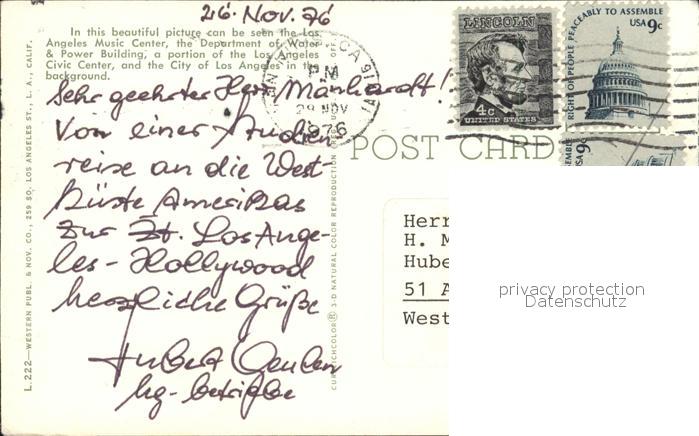 26. Nov. 76
In this beautiful picture can be seen the Los
Angeles Music Center, the Department of Water
& Power Building, a portion of the Los Angeles
Civic Center, and the City of Los Angeles in the
background.
Sehr geehrter Herr Manhardt!
Von einer Studien
reise an die West-
küste Amerikas
zur Zt. Los Ange-
les - Hollywood
herzliche Grüße
Hubert
L.222—WESTERN PUBL. & NOV. CO., 259 SO. LOS ANGELES ST., L. A., CALIF.
3-D NATURAL COLOR REPRODUCTION
PM
28 NOV
1976
CA
LINCOLN
4c
UNITED STATES
RIGHT OF PEOPLE PEACEABLY TO ASSEMBLE
USA 9c
USA 9c
POST CARD
Herr
H. M
Hube
51 A
West
privacy protection
Datenschutz